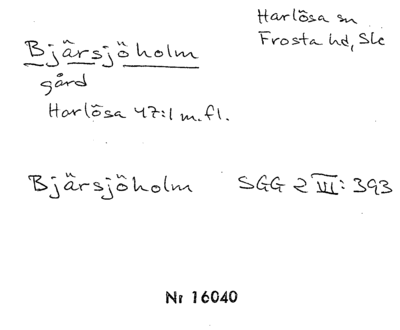 Harlösa sn
Frosta hd, Sk
Bjärsjöholm
gård
Harlösa 47:1 m.fl.
Bjärsjöholm SGG 2 III: 393
Nr 16040